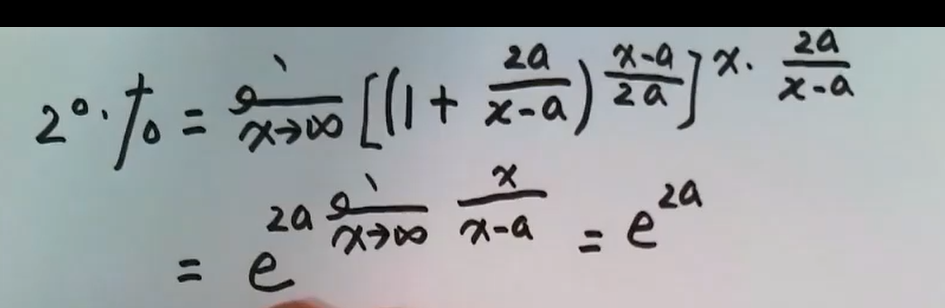 2°. 左 = lim_{x→∞} [(1 + \frac{2a}{x-a})^{\frac{x-a}{2a}}]^{x · \frac{2a}{x-a}}
= e^{2a lim_{x→∞} \frac{x}{x-a}} = e^{2a}